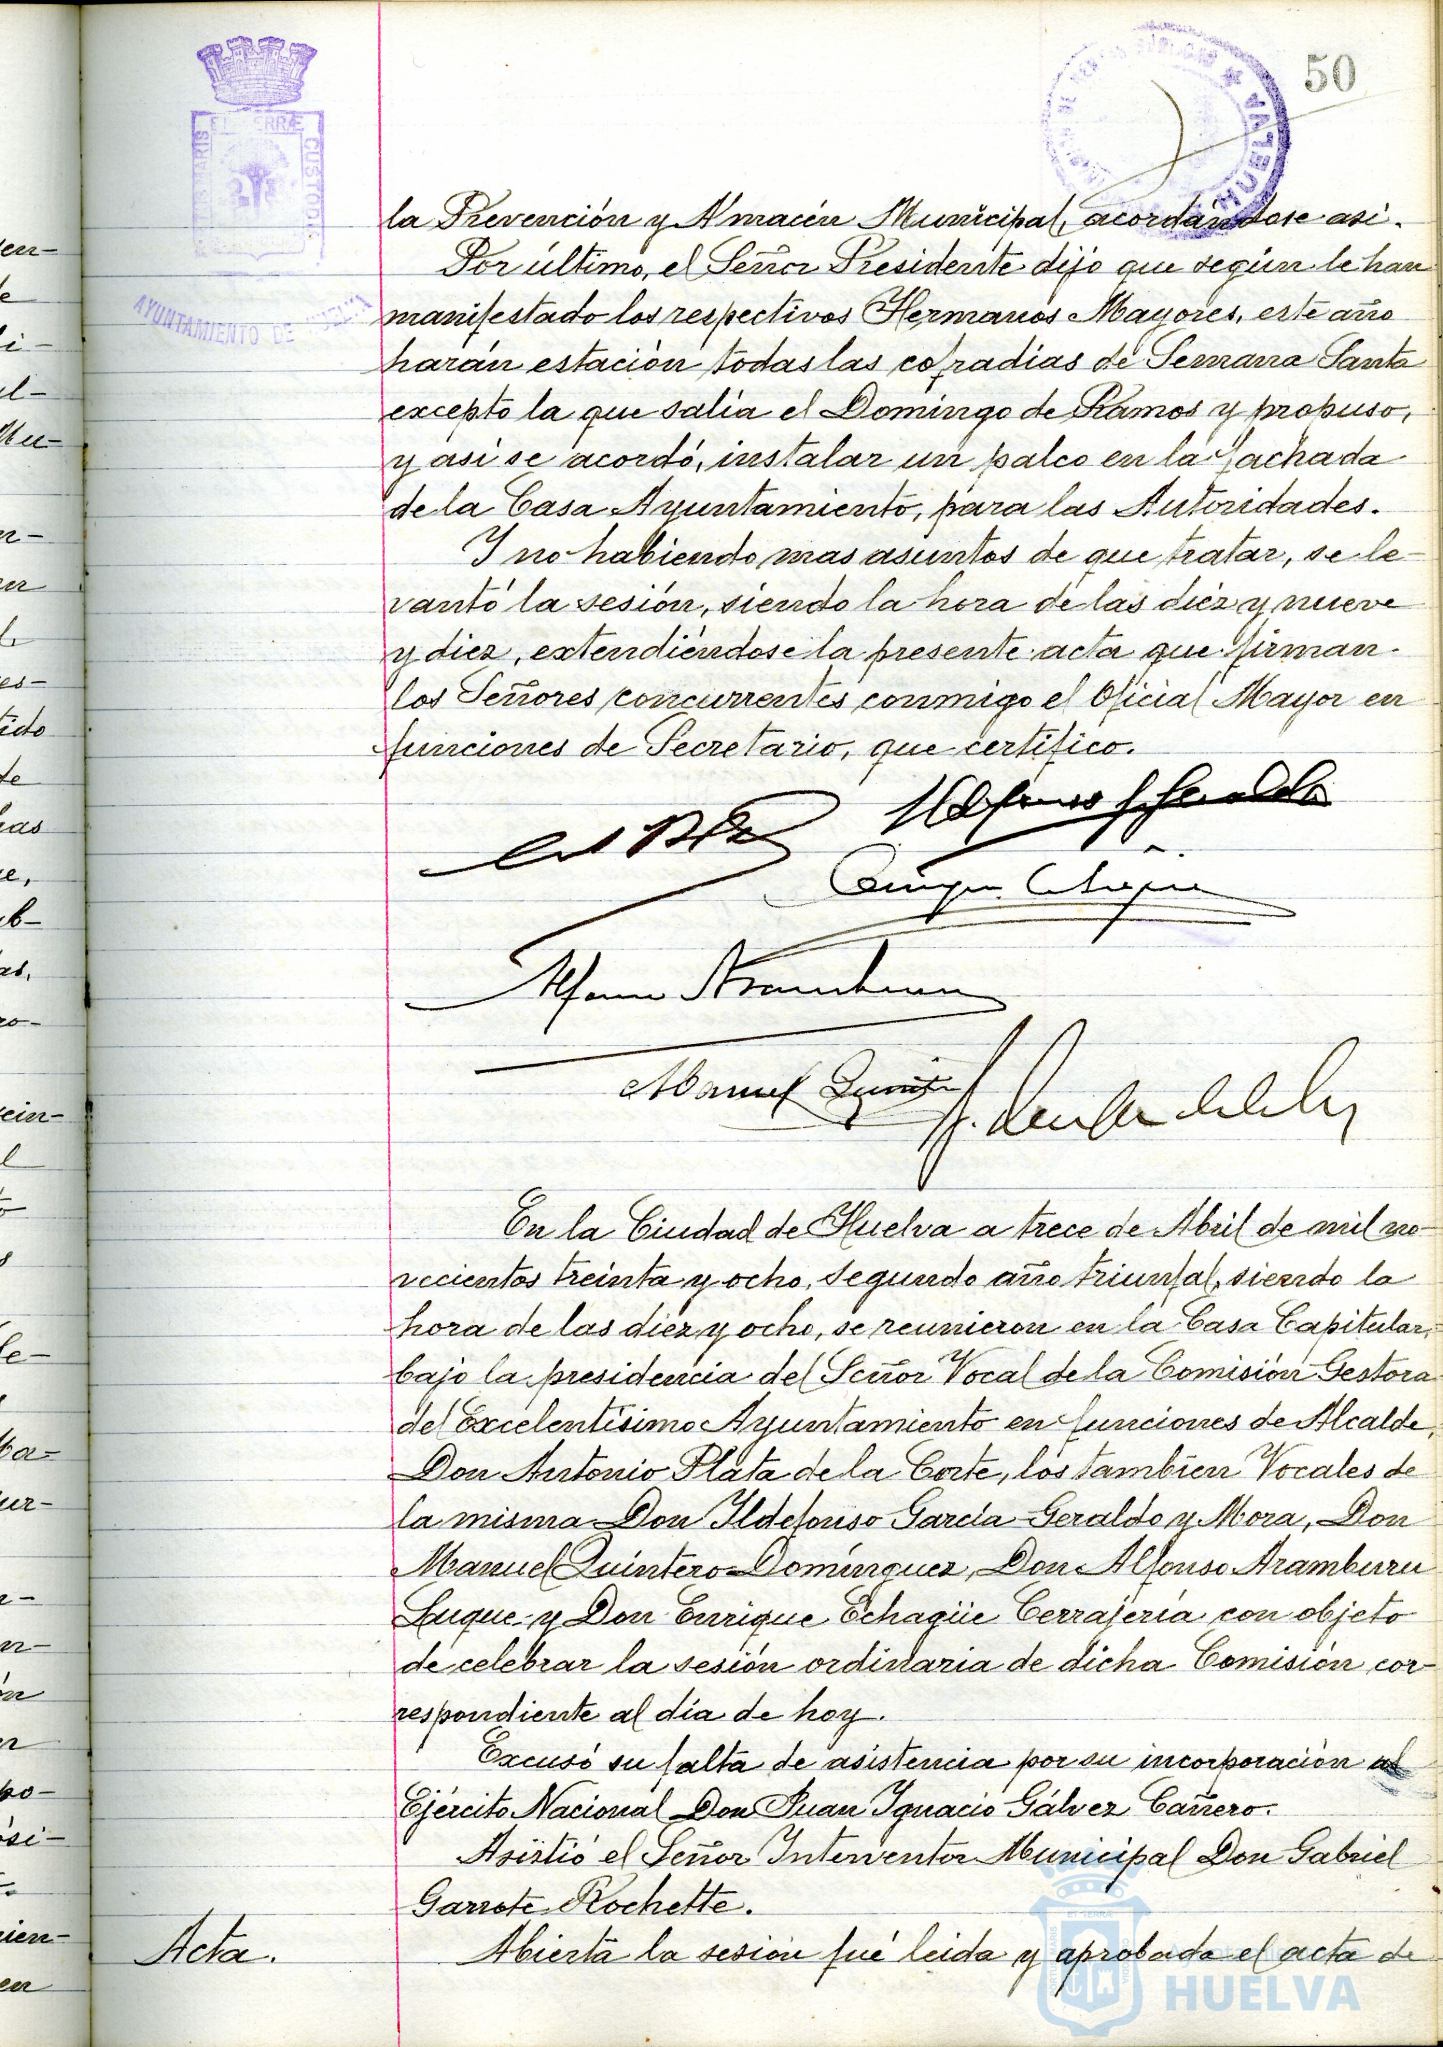 50
HUELVA
PORTUS MARIS ET TERRÆ CUSTODIA
AYUNTAMIENTO DE HUELVA
la Prevención y Almacén Municipal, acordándose asi.
Por último, el Señor Presidente dijo que según le han
manifestado los respectivos Hermanos Mayores, este año
harán estación todas las cofradías de Semana Santa
excepto la que salía el Domingo de Ramos y propuso,
y así se acordó, instalar un palco en la fachada
de la Casa Ayuntamiento, para las Autoridades.
Y no habiendo mas asuntos de que tratar, se le-
vantó la sesión, siendo la hora de las diez y nueve
y diez, extendiéndose la presente acta que firman
los Señores concurrentes conmigo el Oficial Mayor en
funciones de Secretario, que certifico.
Alfonso Aramburu
Manuel Quintero
En la Ciudad de Huelva a trece de Abril de mil no-
vecientos treinta y ocho, segundo año triunfal, siendo la
hora de las diez y ocho, se reunieron en la Casa Capitular,
bajo la presidencia del Señor Vocal de la Comisión Gestora
del Excelentísimo Ayuntamiento en funciones de Alcalde,
Don Antonio Plata de la Corte, los tambien Vocales de
la misma Don Ildefonso García Geraldo y Mora, Don
Manuel Quintero Domínguez, Don Alfonso Aramburu
Luque y Don Enrique Echagüe Cerrajería con objeto
de celebrar la sesión ordinaria de dicha Comisión cor-
respondiente al día de hoy.
Excusó su falta de asistencia por su incorporación al
Ejército Nacional Don Juan Ignacio Gálvez Cañero.
Asistió el Señor Interventor Municipal Don Gabriel
Garrote Rochette.
Acta. Abierta la sesión fué leida y aprobada el acta de
HUELVA